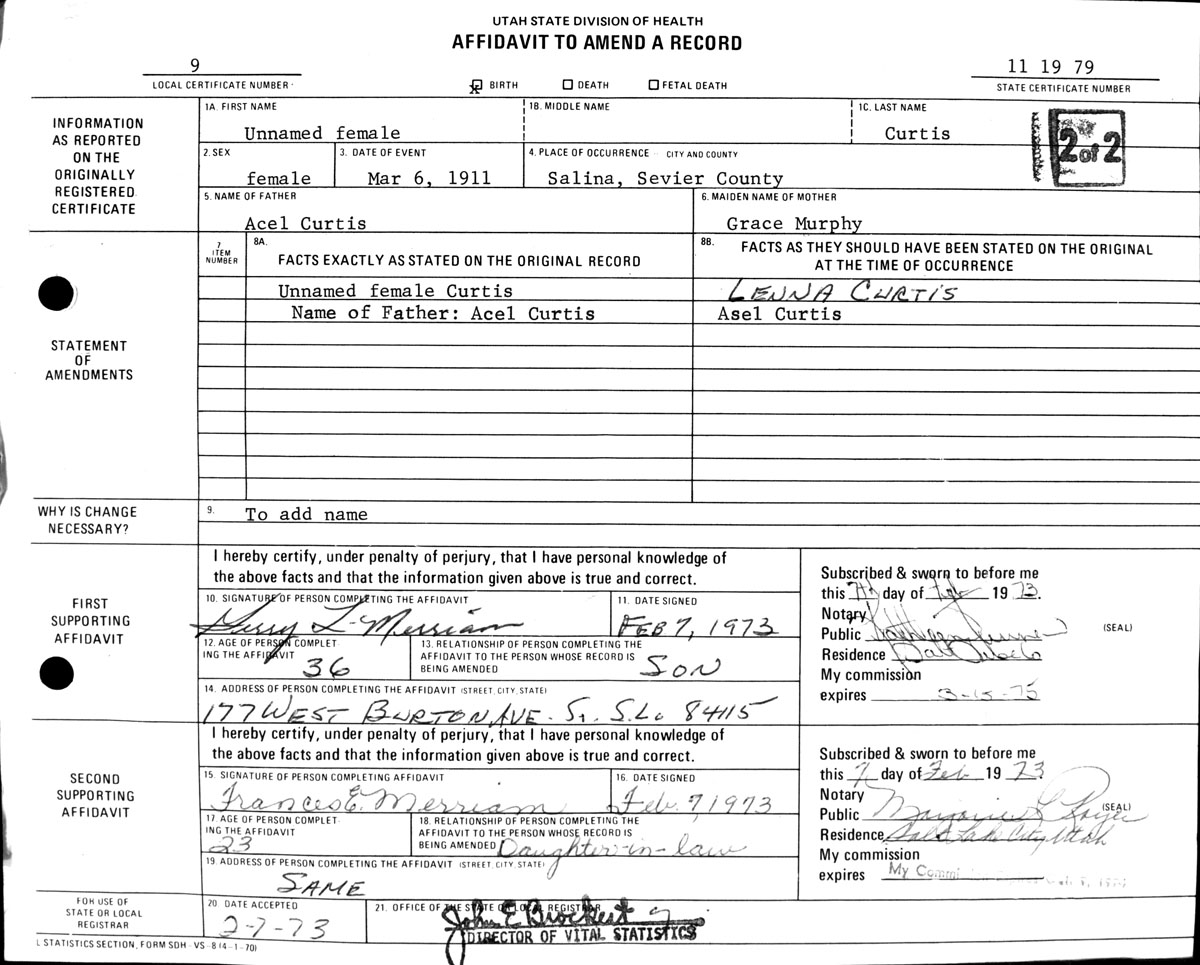 UTAH STATE DIVISION OF HEALTH
AFFIDAVIT TO AMEND A RECORD
9
LOCAL CERTIFICATE NUMBER
BIRTH DEATH FETAL DEATH
11 19 79
STATE CERTIFICATE NUMBER
INFORMATION
AS REPORTED
ON THE
ORIGINALLY
REGISTERED
CERTIFICATE
1A. FIRST NAME
Unnamed female
1B. MIDDLE NAME
1C. LAST NAME
Curtis
2 of 2
2. SEX
female
3. DATE OF EVENT
Mar 6, 1911
4. PLACE OF OCCURRENCE - CITY AND COUNTY
Salina, Sevier County
5. NAME OF FATHER
Acel Curtis
6. MAIDEN NAME OF MOTHER
Grace Murphy
STATEMENT
OF
AMENDMENTS
7
ITEM
NUMBER
8A.
FACTS EXACTLY AS STATED ON THE ORIGINAL RECORD
8B.
FACTS AS THEY SHOULD HAVE BEEN STATED ON THE ORIGINAL
AT THE TIME OF OCCURRENCE
Unnamed female Curtis
LENNA CURTIS
Name of Father: Acel Curtis
Asel Curtis
WHY IS CHANGE
NECESSARY?
9.
To add name
FIRST
SUPPORTING
AFFIDAVIT
I hereby certify, under penalty of perjury, that I have personal knowledge of
the above facts and that the information given above is true and correct.
10. SIGNATURE OF PERSON COMPLETING THE AFFIDAVIT
L. Merriam
11. DATE SIGNED
FEB 7, 1973
12. AGE OF PERSON COMPLET-
ING THE AFFIDAVIT
36
13. RELATIONSHIP OF PERSON COMPLETING THE
AFFIDAVIT TO THE PERSON WHOSE RECORD IS
BEING AMENDED
SON
14. ADDRESS OF PERSON COMPLETING THE AFFIDAVIT (STREET, CITY, STATE)
177 WEST BURTON AVE. S. L. 84115
Subscribed & sworn to before me
this 7th day of Feb 1973.
Notary
Public
(SEAL)
Residence
My commission
expires 3-15-75
SECOND
SUPPORTING
AFFIDAVIT
I hereby certify, under penalty of perjury, that I have personal knowledge of
the above facts and that the information given above is true and correct.
15. SIGNATURE OF PERSON COMPLETING AFFIDAVIT
Frances E. Merriam
16. DATE SIGNED
Feb. 7, 1973
17. AGE OF PERSON COMPLET-
ING THE AFFIDAVIT
23
18. RELATIONSHIP OF PERSON COMPLETING THE
AFFIDAVIT TO THE PERSON WHOSE RECORD IS
BEING AMENDED Daughter-in-law
19. ADDRESS OF PERSON COMPLETING THE AFFIDAVIT (STREET, CITY, STATE)
SAME
Subscribed & sworn to before me
this 7 day of Feb 1973
Notary
Public
(SEAL)
Residence Salt Lake City, Utah
My commission
expires My
FOR USE OF
STATE OR LOCAL
REGISTRAR
20. DATE ACCEPTED
2-7-73
21. OFFICE OF THE STATE OR LOCAL REGISTRAR
John E. Brockert
DIRECTOR OF VITAL STATISTICS
L STATISTICS SECTION, FORM SDH - VS - 8 (4-1-70)